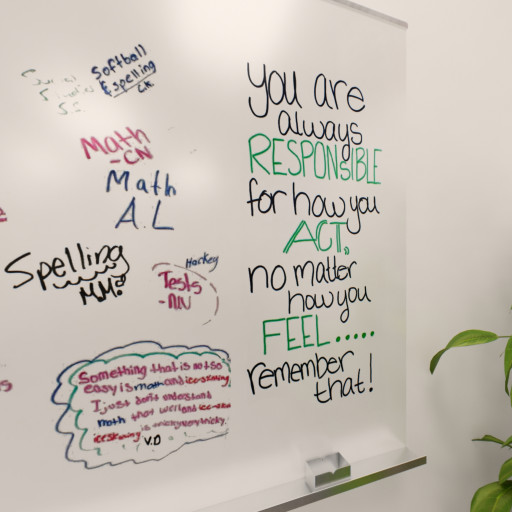 Softball
& spelling
CK
Math
-CN
Math
A.L
Spelling
MM.
Hockey
Tests
-NN
Something that is not so
easy is math and ice-skating
I just don't understand
math that well and ice-
iceskating is tricky very tricky.
V.D
you are
always
RESPONSIBLE
for how you
ACT,
no matter
how you
FEEL.....
remember
that!